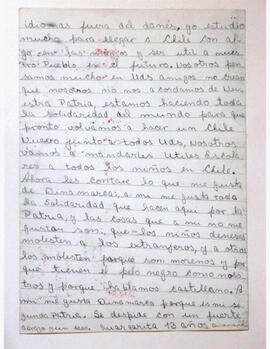 idiomas fuera del danés, yo estudio
mucho para llegar a Chile con al
go en las manos y ser util a nues
tro Pueblo en el futuro. Nosotros pen
samos mucho en Uds amigos no crean
que nosotros no nos a cordamos de Nu
estra Patria, estamos haciendo toda
la solidaridad del mundo para que
pronto volvamos a hacer un Chile
Nuevo junto a todos Uds, Nosotros
vamos a mandarles Utiles Escola
res a todos los niños en Chile.
Ahora les contare lo que me gusta
de Dinamarca: a mi me gusta toda
la Solidaridad que hacen aqui por la
Patria, y las cosas que a mi no me
gustan son: que los niños daneses
molestan a los extranjeros, y a otros
los molestan porque son morenos y por
que tienen el pelo negro como noso
tros y porque hablamos castellano. A
mi me gusta Dinamarca porque es mi se
gunda Patria. Se despide con un fuerte
abrazo Margarita 13 años